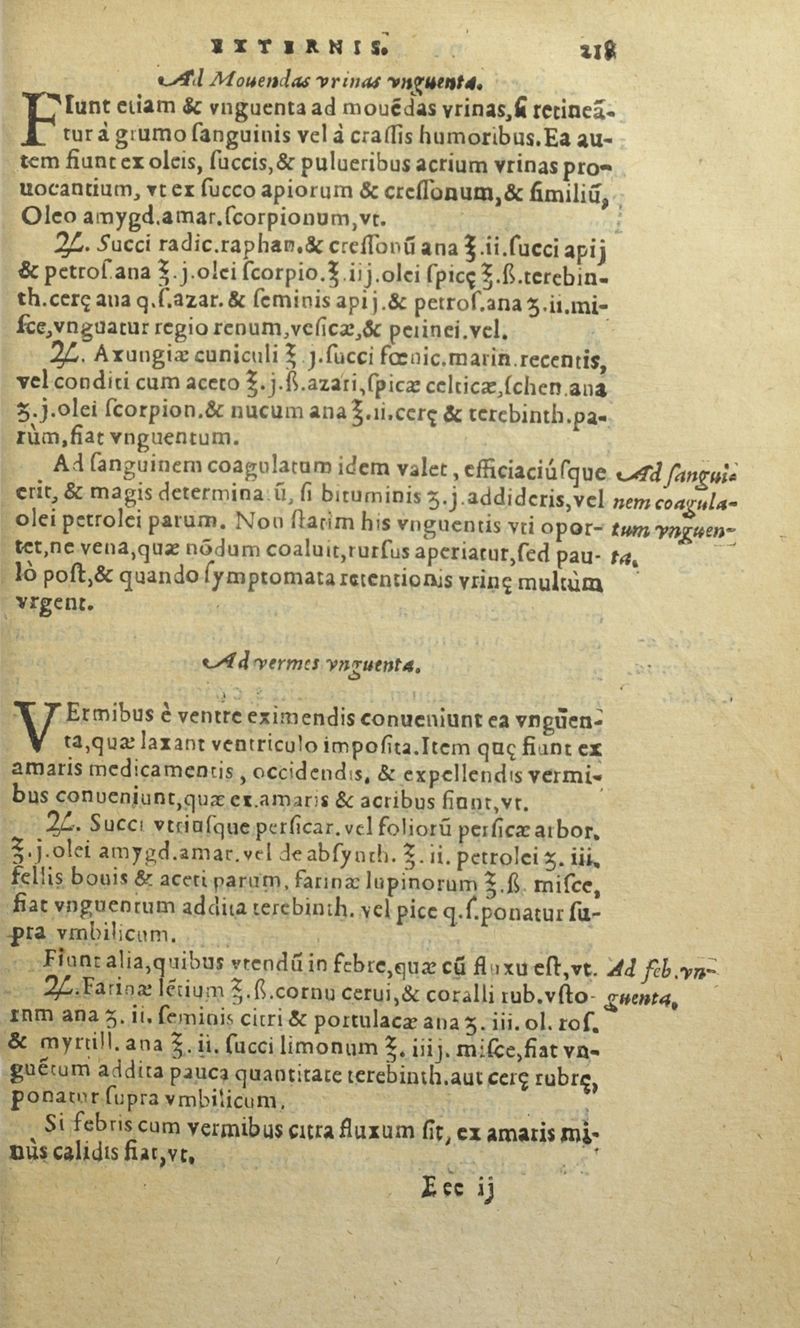 EXTERNIS. 218
Ad Mouendas vrinas vnguenta.
FIunt etiam & vnguenta ad mouẽdas vrinas, ſi retineã-
tur à grumo ſanguinis vel à craſſis humoribus. Ea au-
tem fiunt ex oleis, ſuccis, & pulueribus acrium vrinas pro-
uocantium, vt ex ſucco apiorum & creſſonum, & ſimiliũ,
Oleo amygd.amar.ſcorpionum, vt.
℞. Succi radic.raphan.& creſſonũ ana ℥.ii.ſucci apij
& petroſ.ana ℥.j.olei ſcorpio.℥.iij.olei ſpicę ℥.ß.terebin-
th.cerę ana q.ſ.azar.& ſeminis apij.& petroſ.ana ʒ.ii.mi-
ſce, vnguatur regio renum, veſicæ, & peꝛinei.vel.
℞. Axungiæ cuniculi ℥.j.ſucci fœnic.marin.recentis,
vel conditi cum aceto ℥.j.ß.azari, ſpicæ celticæ, ſchen.ana
ʒ.j.olei ſcorpion.& nucum ana ℥.ii.cerę & terebinth.pa-
rùm, fiat vnguentum.
Ad ſanguinem coagulatum idem valet, efficaciúſque
erit, & magis determinatũ, ſi bituminis ʒ.j.addideris, vel
olei petrolei parum. Non ſtatim his vnguentis vti opor-
tet, ne vena, quæ nõdum coaluit, rurſus aperiatur, ſed pau-
lò poſt, & quando ſymptomata retentionis vrinę multùm
vrgent.
Ad ſangui-
nem coagula-
tum vnguen-
ta.
Ad vermes vnguenta.
VErmibus è ventre eximendis conueniunt ea vnguen-
ta, quæ laxant ventriculo impoſita. Item quę fiunt ex
amaris medicamentis, occidendis, & expellendis vermi-
bus conueniunt, quæ ex.amaris & acribus fiunt, vt.
℞. Succi vtriuſque perſicar. vel foliorũ perſicæ arbor.
℥.j.olei amygd.amar. vel de abſynth. ℥. ii. petrolei ʒ. iii.
fellis bouis & aceti parum, farinæ lupinorum ℥.ß. miſce,
fiat vnguentum addita terebinth. vel pice q.ſ.ponatur ſu-
pra vmbilicum.
Fiunt alia, quibus vtendũ in febre, quæ cũ fluxu eſt, vt.
℞. Farinæ lẽtium ℥.ß.cornu cerui, & coralli rub.vſto-
rum ana ʒ. ii. ſeminis citri & portulacæ ana ʒ. iii. ol. roſ.
& myrtill. ana ℥. ii. ſucci limonum ℥. iiij. miſce, fiat vn-
guẽtum addita pauca quantitate terebinth.aut cerę rubrę,
ponatur ſupra vmbilicum.
Ad feb.vn-
guenta.
Si febris cum vermibus citra fluxum ſit, ex amaris mi-
nùs calidis fiat, vt,
Eee ij